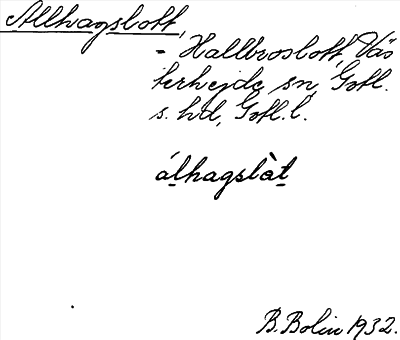 Allhagslott,
= Hallbroslott, Väs
terhejde sn, Gotl.
s. hd, Gotl. l.
álhagslàt
B. Bolin 1932.